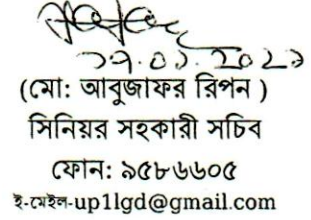 (মো: আবুজাফর রিপন )
সিনিয়র সহকারী সচিব
ফোন: ৯৫৮৮৬৬০৫
ই-মেইল-up1lgd@gmail.com